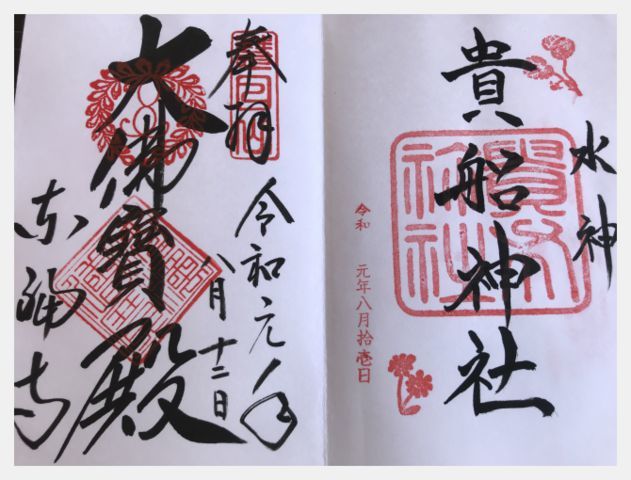 水神
貴船神社
令和 元年八月拾壱日
奉拝
令和元年
八月十二日
大佛寶殿